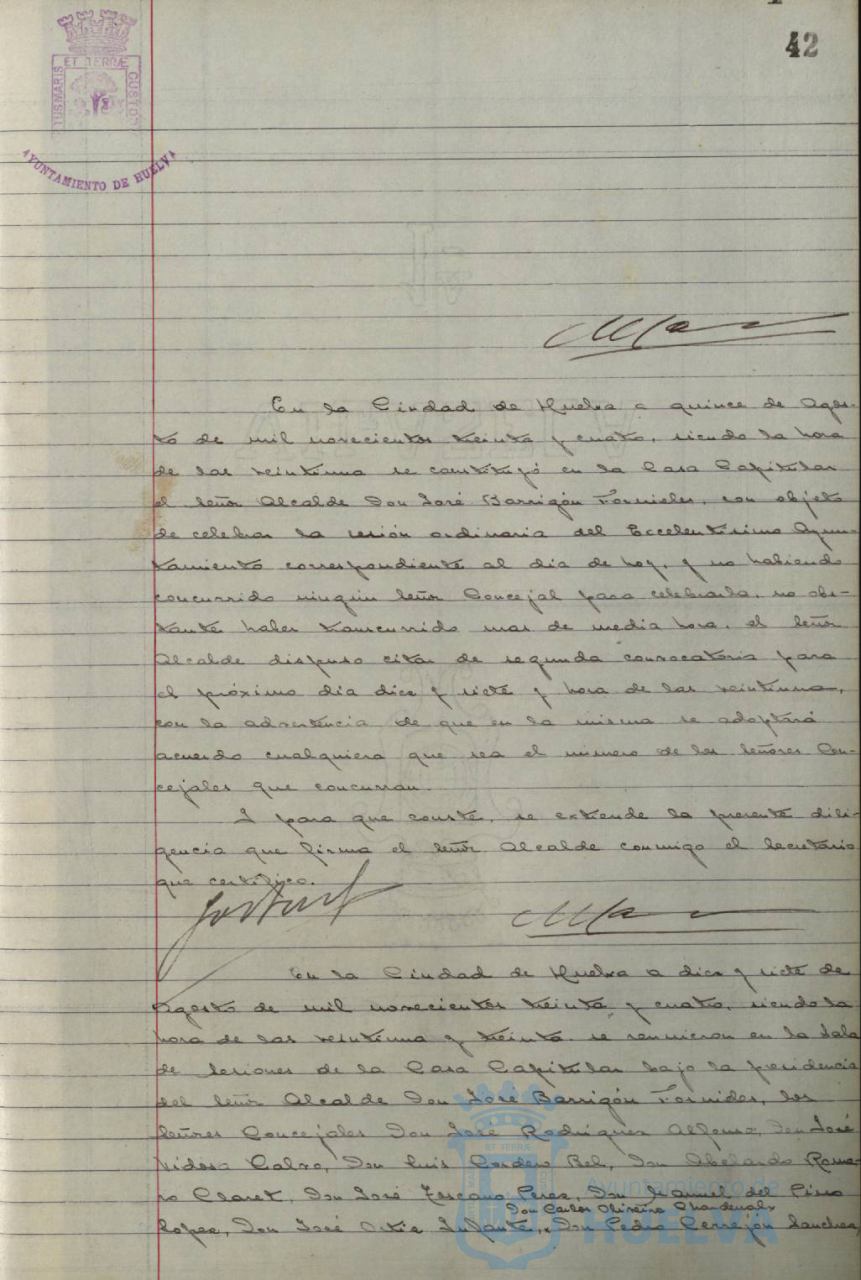 42
ET TERRÆ
TUS MARIS
CUSTO
AYUNTAMIENTO DE HUELVA
En la Ciudad de Huelva a quince de Agos-
to de mil novecientos treinta y cuatro, siendo la hora
de las veintiuna se constituyó en la Casa Capitular
el Señor Alcalde Don José Barrigón Fornieles, con objeto
de celebrar la sesión ordinaria del Excelentísimo Ayun-
tamiento correspondiente al dia de hoy, y no habiendo
concurrido ningún Señor Concejal para celebrarla, no obs-
tante haber transcurrido mas de media hora, el Señor
Alcalde dispuso citar de segunda convocatoria para
el próximo dia diez y siete y hora de las veintiuna,
con la advertencia de que en la misma se adoptará
acuerdo cualquiera que sea el número de los Señores Con-
cejales que concurran.
Y para que conste, se extiende la presente dili-
gencia que firma el Señor Alcalde conmigo el Secretario
que certifico.
En la Ciudad de Huelva a diez y siete de
Agosto de mil novecientos treinta y cuatro, siendo la
hora de las veintiuna y treinta se reunieron en la Sala
de Sesiones de la Casa Capitular bajo la presidencia
del Señor Alcalde Don José Barrigón Fornieles, los
Señores Concejales Don José Rodríguez Alfonso, Don José
Vidosa Calvo, Don Luis Cordero Bel, Don Abelardo Rome-
ro Claret, Don José Toscano Perez, Don Manuel del Pino
Don Carlos Oliveira Chardenal
Lopez, Don José Ortiz Infante, Don Pedro Cerrejón Sanchez,
Ayuntamiento de
HUELVA